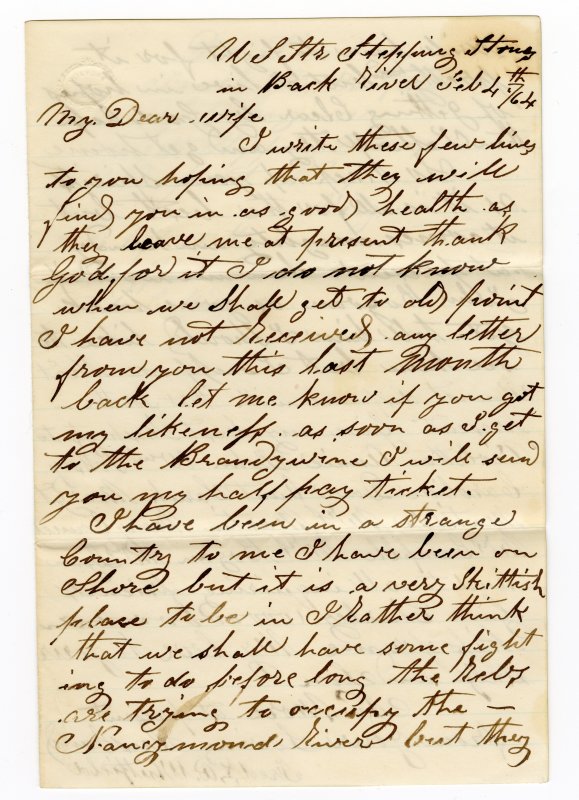 U S Str Stepping Stones
in Back River Feb 4th /64
My Dear wife
I write these few lines
to you hoping that they will
find you in as good health as
they leave me at present thank
God for it I do not know
when we shall get to old point
I have not received any letter
from you this last Month
back let me know if you got
my likeness. as soon as I get
to the Brandywine I will send
you my half pay ticket.
I have been in a strange
Country to me I have been on
Shore but it is a very Skittish
place to be in I rather think
that we shall have some fight
ing to do before long the Rebs
are trying to occupy the —
Nancymond River but they